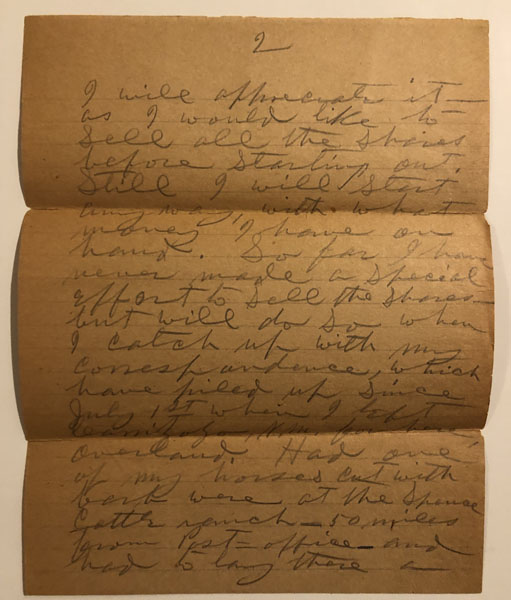 2
I will appreciate it—
as I would like to
Sell all the Shares
before Starting out.
Still I will Start
any way, with what
money I have on
hand. So far I have
never made a Special
effort to Sell the Shares—
but will do So when
I catch up with my
correspondence, which
have piled up Since
July 1st when I left
overland. Had one
of my horses cut with
were at the Spence
Cattle ranch — 50 miles
from Post-office — and
had to lay there a